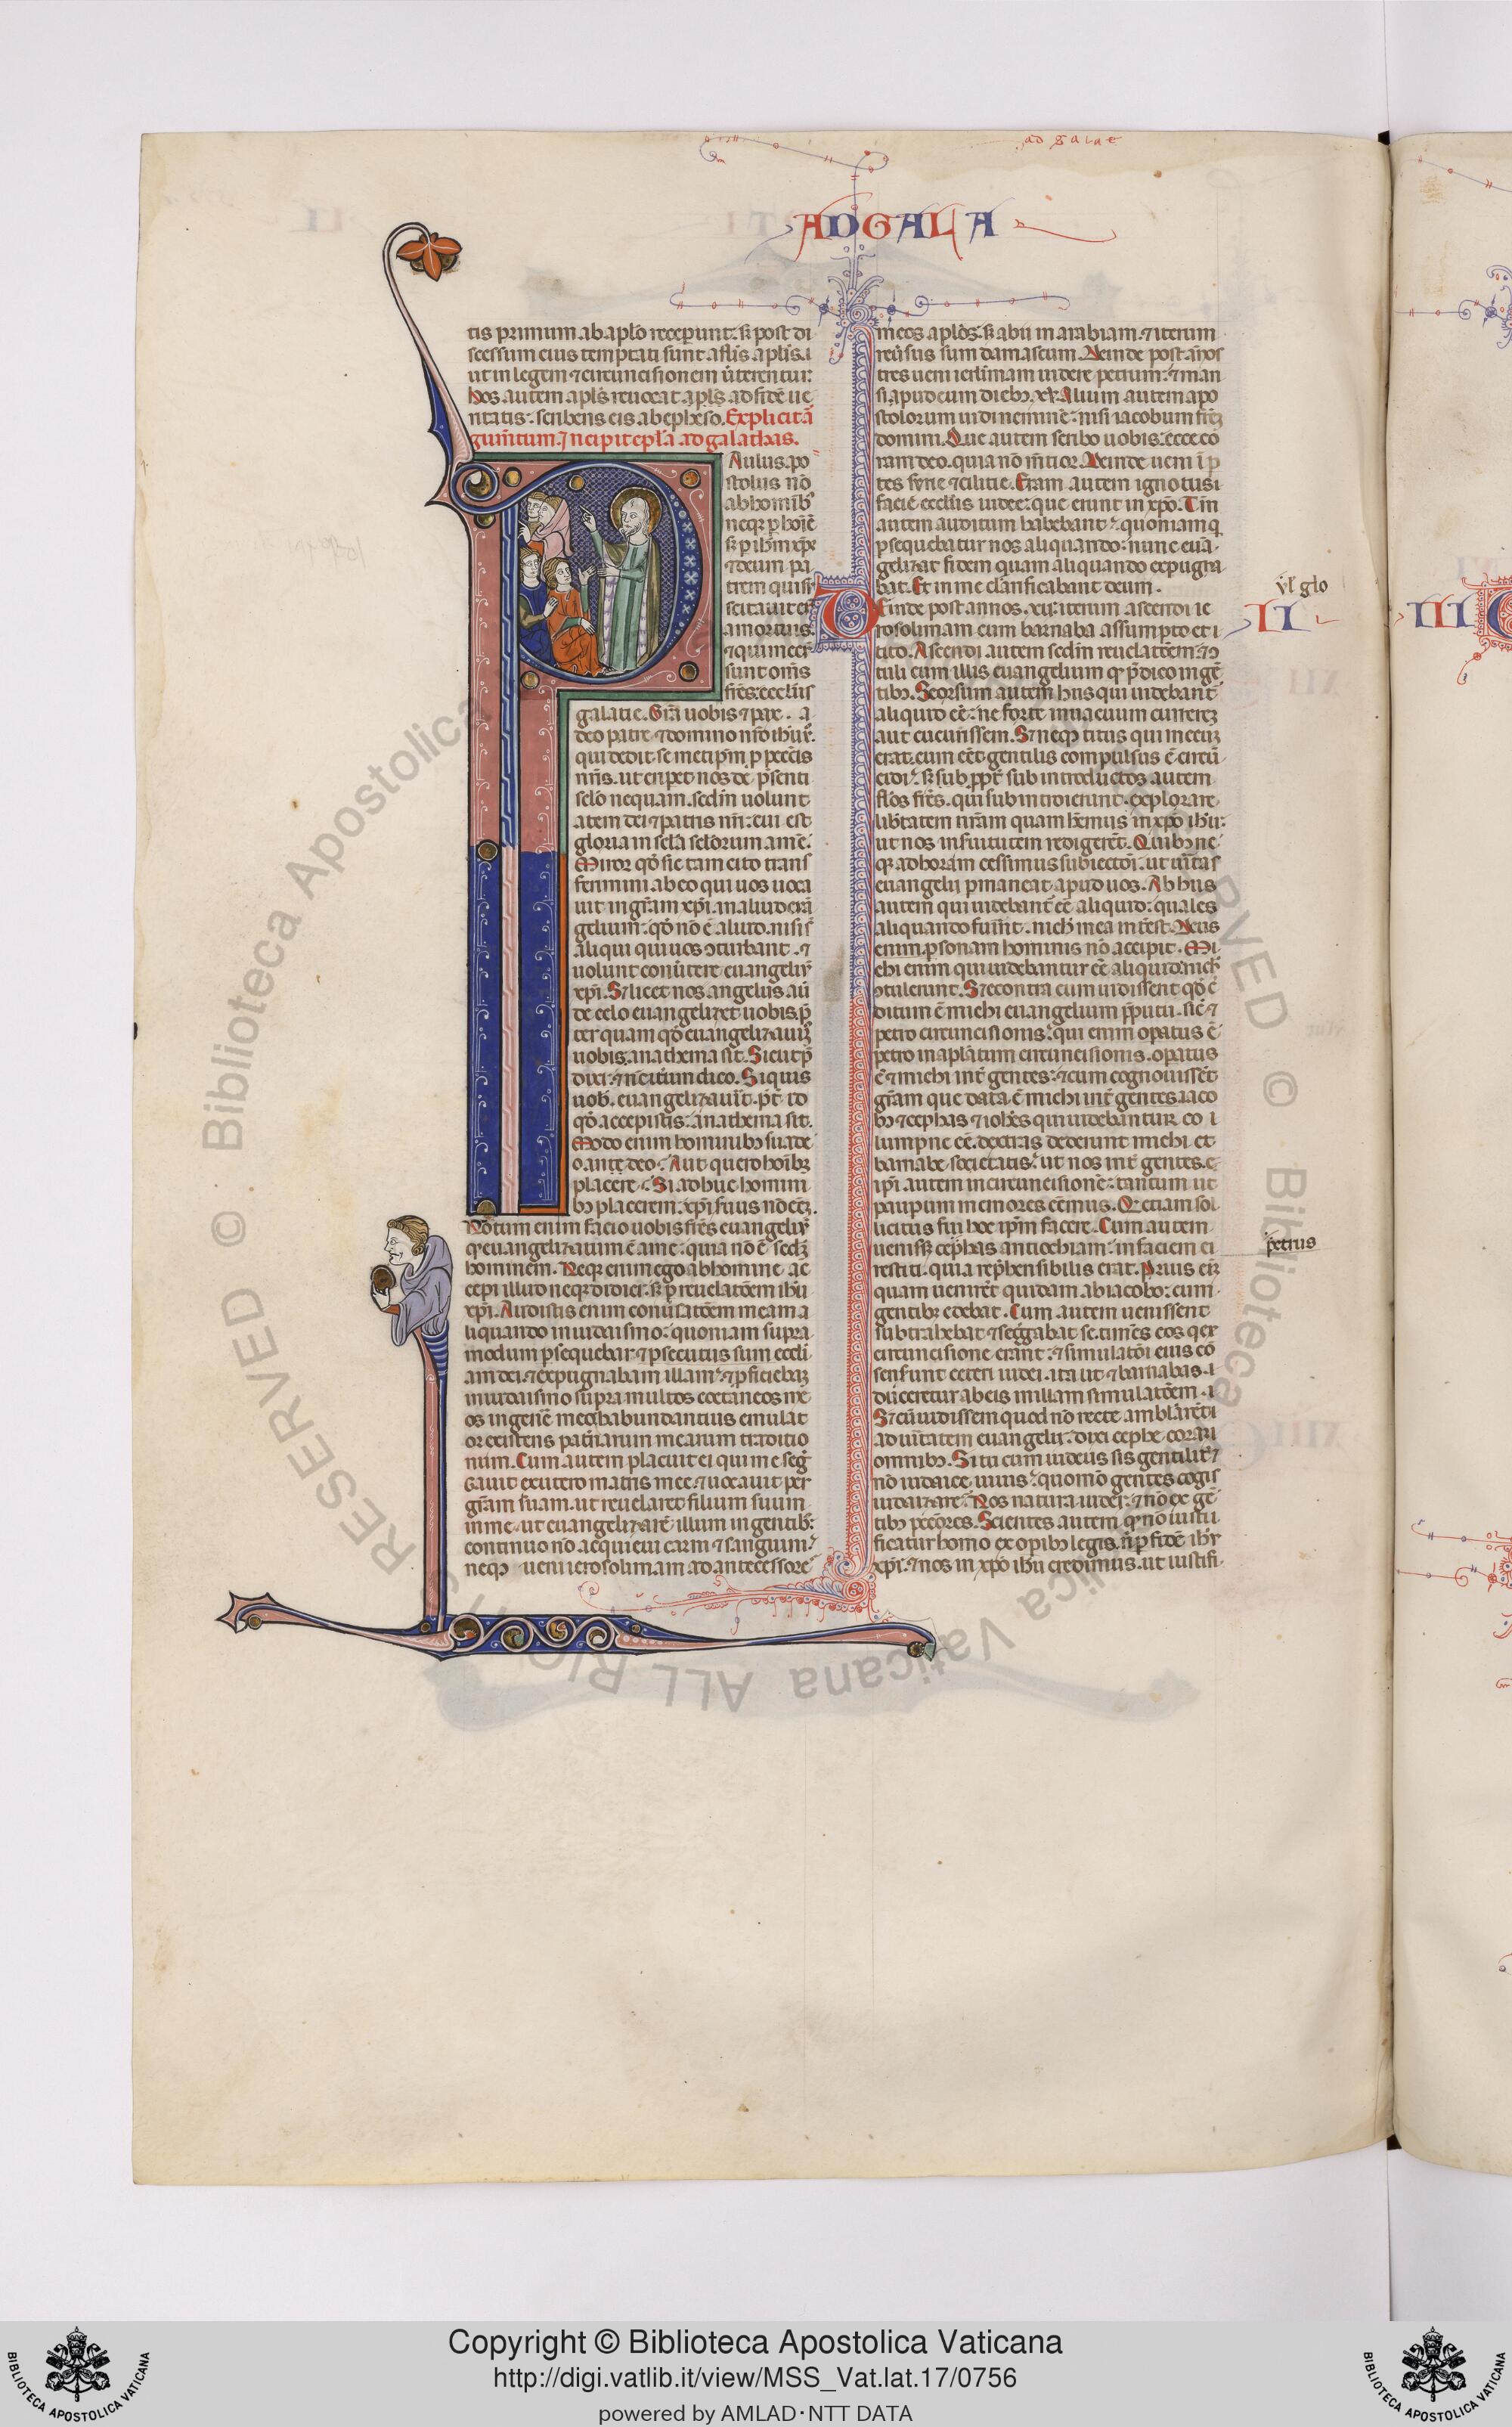 ad galat
AD GALA
tis primum ab aplo̅ receperunt. s̅ post di
scessum eius temptati sunt a fl̅is apl̅is. i
ut in legem ⁊ circuncisionem ūterentur.
hos autem apl̅s reuocat apl̅s ad fidē ue
ritatis. scribens eis ab epheso. Explicit a̅
gum̅tum. Incipit epl̅a ad galathas.
Aulus. po
stolus nō
ab homīb'
neq; p hoīē
s̅ p ihm̅ xp̅
⁊ deum pa
trem qui su
scitauit eū
a mortuis.
⁊ qui mecū
sunt om̅s
fr̅es. eccl̅iis
galatie. Gr̅a uobis ⁊ pax. a
deo patre ⁊ domino nr̅o ihu̅ xr̅.
qui dedit semetip̅m p peccā̅tis
nr̅is. ut eriperet nos de p̅senti
sclo̅ nequam. scd̅m uolunt
atem dei ⁊ patris nr̅i. cui est
gloria in scl̅a sclo̅rum amē.
Miror qd̅ sic tam cito trans
ferimini ab eo qui uos uoca
uit in gr̅am xp̅i. in aliud euā
gelium. qd̅ nō ē aliud. nisi s̅
aliqui qui uos ↄturbant. ⁊
uolunt conūtere euangeliū
xp̅i. S; licet nos aut angelus
de celo euangelizet uobis. p̅
ter quam qd̅ euangelizauim̅
uobis. anathema sit. Sicut p̅
dixi. ⁊ nc̅ iterum dico. Siquis
uob. euangelizauit. p̅t. id
qd̅ accepistis. anathema sit.
Modo enim hominib; suade
o. ante deo. Aut quero hoīb;
placere. Si adhuc homini
b; placerem. xp̅i seruus nō eēm.
Notum enim facio uobis fr̅es euangeliū
q̅ euangelizatum ē a me. quia nō ē scd̅
hominem. Neq; enim ego ab homine ac
cepi illud neq; didici. s̅ p reuelatōem ihu̅
xp̅i. Audistis enim conūsatōem meam a
liquando in iudaismo. quoniam supra
modum p̅sequebar ⁊ p̅secutus sum eccli̅
am dei. ⁊ expugnabam illam. ⁊ p̅ficiebam
in iudaismo supra multos coetaneos me
os in genē meo. habundantius emulat
or existens pat̅narum mearum traditio
num. Cum autem placuit ei qui me seg̅
gauit ex utero matris mee. ⁊ uocauit per
gr̅am suam. ut reuelaret filium suum
in me. ut euangelizarē illum in gentib;
continuo nō acquieui carni ⁊ sanguini.
neq; ueni ierosolimam ad antecessore
meos apl̅os. s̅ abii in arabiam. ⁊ iterum
reūsus sum damascum. Deinde post ān̅os
tres ueni ierl̅imam uidere petrum. ⁊ man
si apud eum dieb; xv. Alium autem apo
stolorum uidi neminē. nisi iacobum fr̅em
domini. Que autem scribo uobis. ecce co
ram deo. quia nō m̅tior. Deinde ueni ī p
tes syrie ⁊ cilicie. Eram autem ignotus i
faciē eccl̅iis iudee. que erant in xp̅o. Tm̅
autem auditum habebant. quoniam q̅
p̅sequebatur nos aliquando. nunc euā
gelizat fidem quam aliquando expugna
bat. Et in me clarificabant deum.
vl̅ glo
Deinde post annos. xiiii. iterum ascendi ie
II
rosolimam cum barnaba assumpto et i
tito. Ascendi autem scd̅m reuelatōem. ⁊ ↄ
tuli cum illis euangelium q̅ p̅dico in gē
tib;. Seorsum autem hiis qui uidebant̅
aliquid eē. ne forte in uacuum currerem
aut cucurrissem. S; neq; titus qui mecum
erat. cum eēt gentilis compulsus ē circū
cidi. s̅ sub p̅pt̅ sub introductos autem
fl̅os fr̅es. qui subintroierunt explorare
lib̅tatem nr̅am quam hēmus in xp̅o ihu̅.
ut nos in seruitutem redigerēt. Quib; ne
q; ad horam cessimus subiectōi. ut uītas
euangelii p̅maneat apud uos. Ab hiis
autem qui uidebant̅ eē aliquid. quales
aliquando fuīnt. nich̅ mea int̅est. Deus
enim p̅sonam hominis nō accipit. Mi
chi enim qui uidebantur eē aliquid. nich̅
ↄtulerunt. S; econtra cum uidissent qd̅ c̅
ditum ē michi euangelium p̅putii. sic̅ ⁊
petro circuncisionis. qui enim opatus ē
petro in apl̅atum circuncisionis. opatus
ē ⁊ michi int̅ gentes. ⁊ cum cognouissēt
gr̅am que data ē michi int̅ gentes. iaco
b; ⁊ cephas ⁊ ioh̅es qui uidebantur co i
lumpne eē. dextras dederunt michi et
barnabe societatis. ut nos int̅ gentes. c̅
ip̅i autem in circuncisionē. tantum ut
paup̅um memores eēmus. Q̅ etiam sol
licitus fui hoc ip̅m facere. Cum autem
uenisset cephas antiochiam. in faciem ei
petrus
restiti. quia rep̅hensibilis erat. Prius eni̅
quam uenirēt quidam ab iacobo. cum
gentib; edebat. Cum autem uenissent
subtrahebat ⁊ seg̅gabat se. timēs eos q ex
circuncisione erānt. ⁊ simulatōi eius cō
senserunt ceteri iudei. ita ut ⁊ barnabas. i
duceretur ab eis in illam simulatōem. i
S; cū uidissem quod nō recte ambularēt i
ad uītatem euangelii. dixi cephe coram
omnib;. Si tu cum iudeus sis gentilit̅ ⁊
nō iudaice uiuis. quomō gentes cogis
iudaizare. Nos natura iudei. ⁊ nō ex gē
tib; pccōres. Scientes autem q̅ nō iusti
ficatur homo ex opib; legis. n̅ p fidē ihu̅
xp̅i. ⁊ nos in xp̅o ihu̅ credimus. ut iustifi
III
© Biblioteca Apostolica Vaticana ALL RIGHTS RESERVED
Copyright © Biblioteca Apostolica Vaticana
http://digi.vatlib.it/view/MSS_Vat.lat.17/0756
powered by AMLAD·NTT DATA
BIBLIOTECA APOSTOLICA VATICANA
BIBLIOTECA APOSTOLICA VATICANA